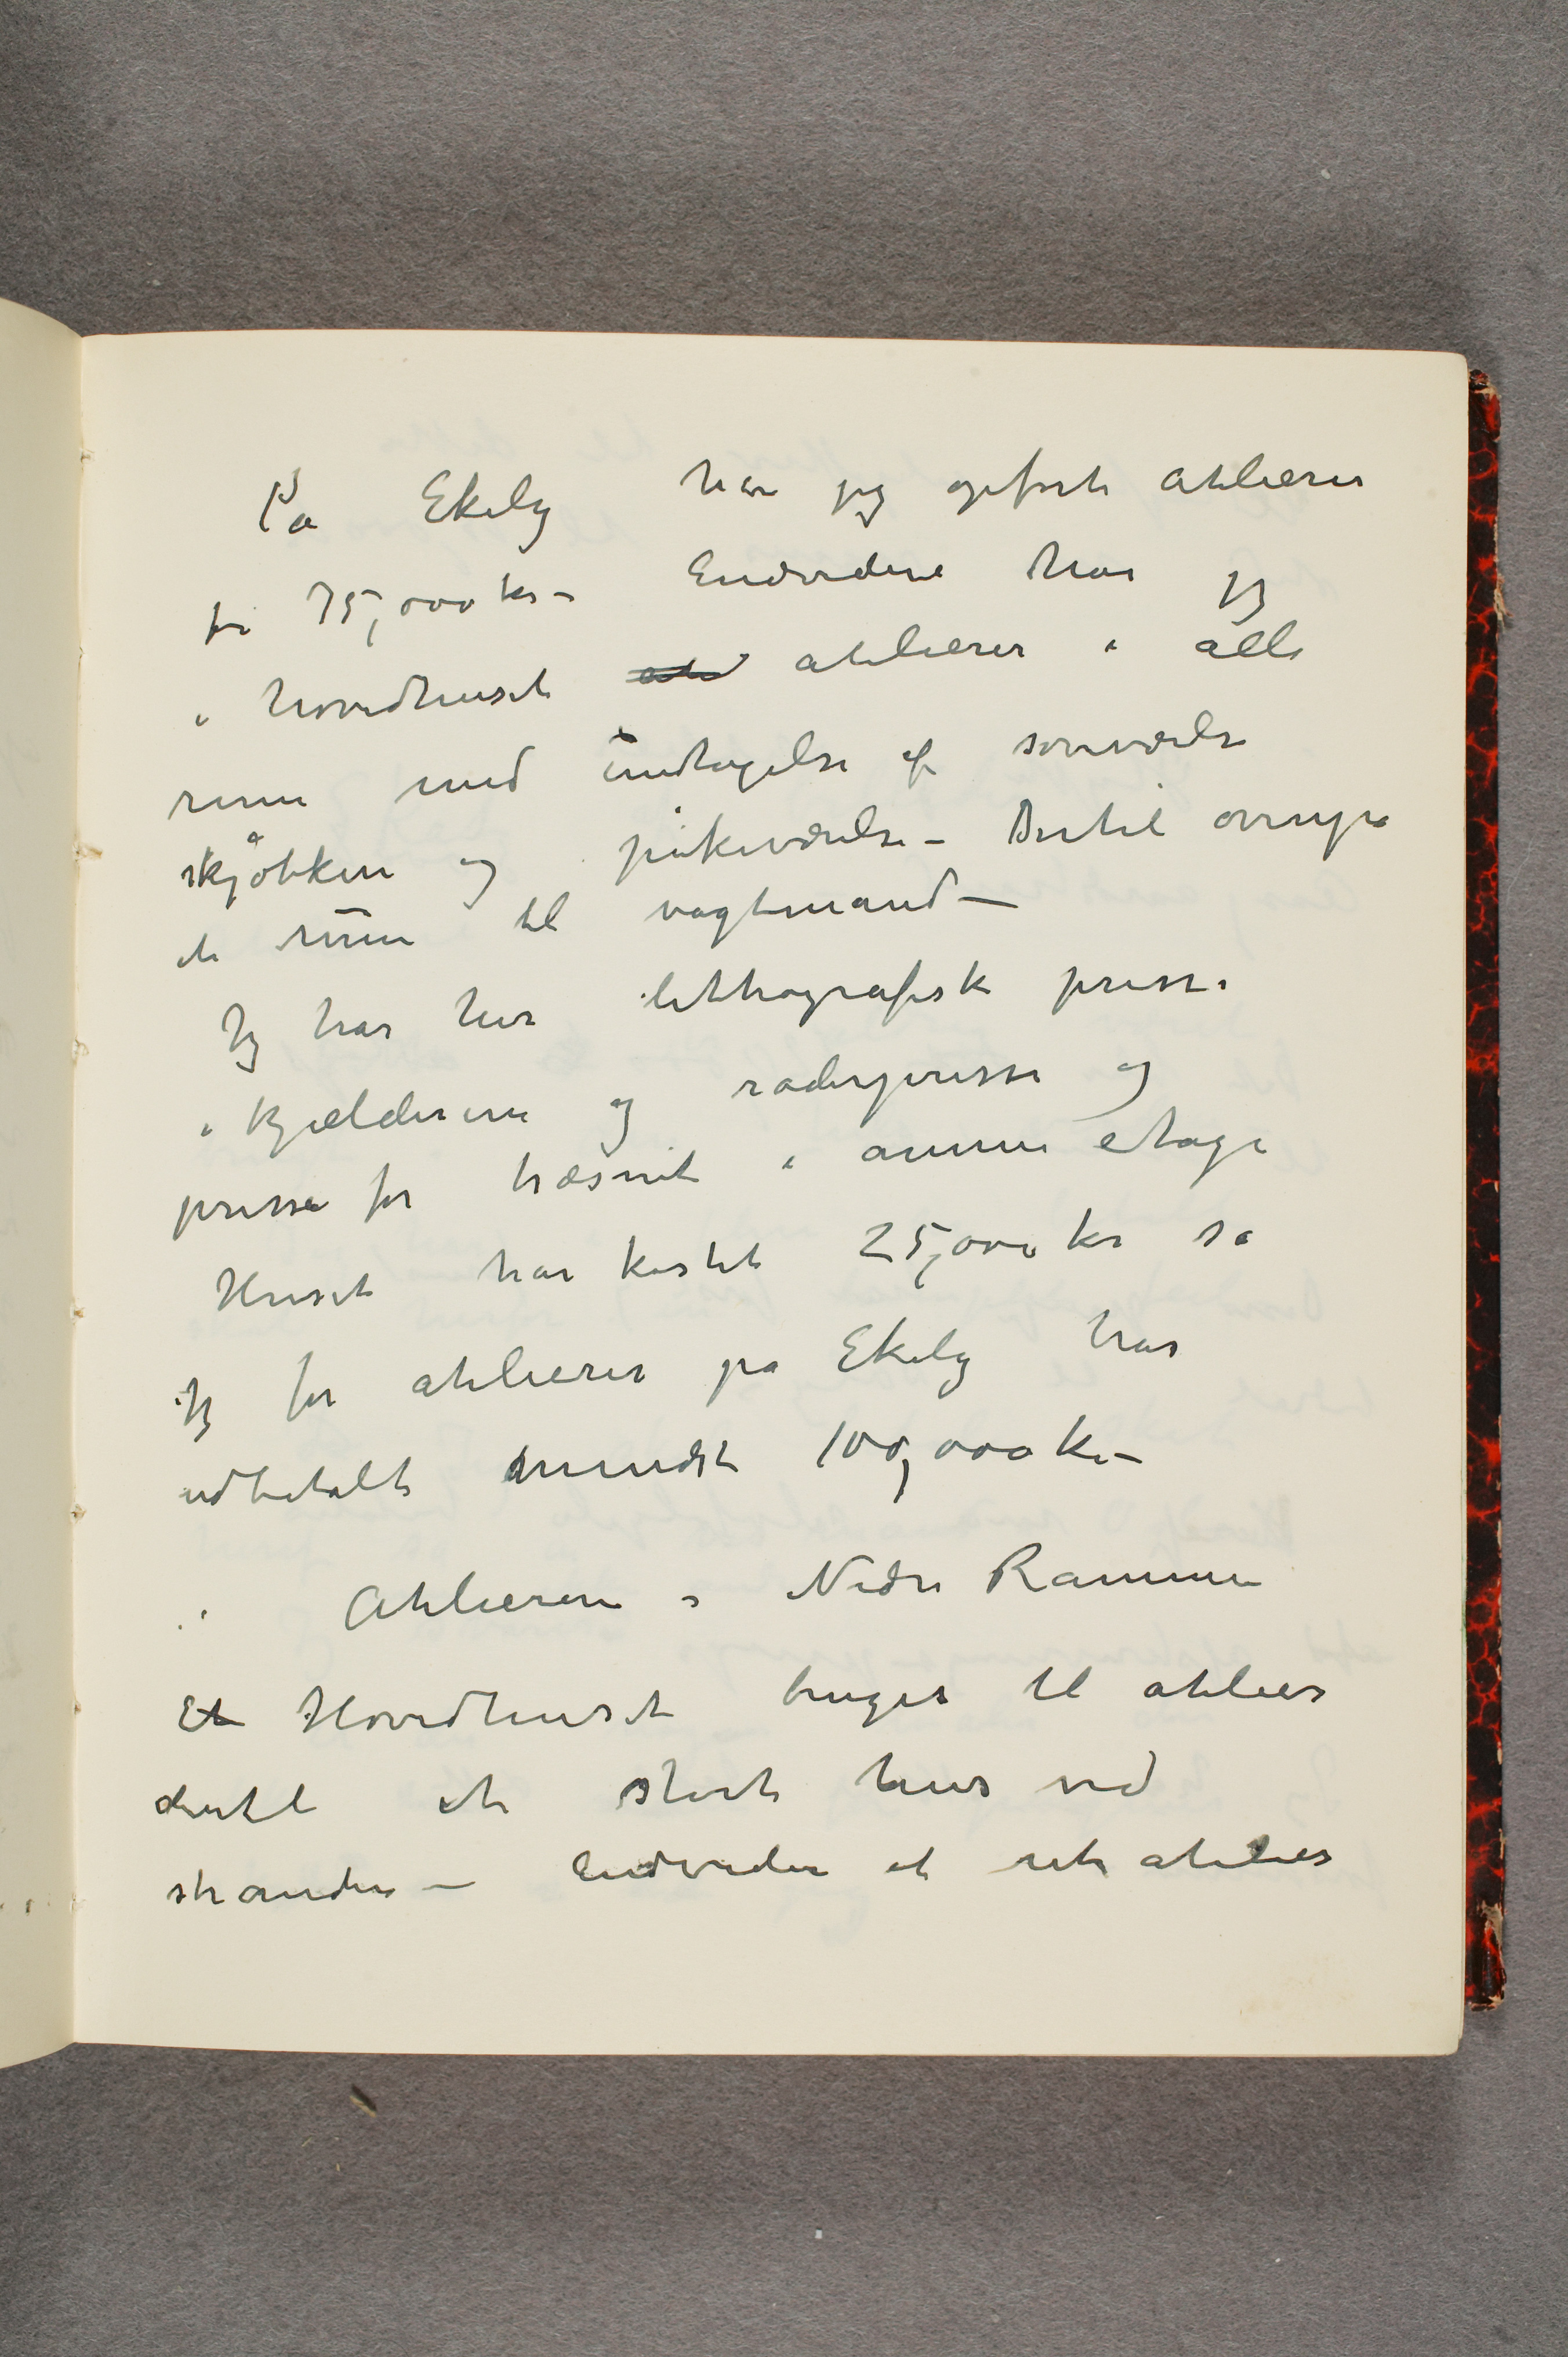 På Ekely har jeg opført atelierer
for 75,000 kr – Endvidere har jeg
i hovedhuset atelierer i alle
rum med undtagelse af soveværelse
skjøkken og pikeværelse – Dertil ovenpå
et rum til vagtmand –
Jeg har her lithografisk presse
i kjælderen og raderpresse og
presse for træsnit i annen etage
Huset har kostet 25,000 kr så
jeg for atelierer på Ekely har
udbetalt mindst 100,000 kr –
Atelieren i Nedre Rammen
Et Hovedhuset bruges til atelier
dertil et stort hus ved
stranden – Endvidere et ute atelier